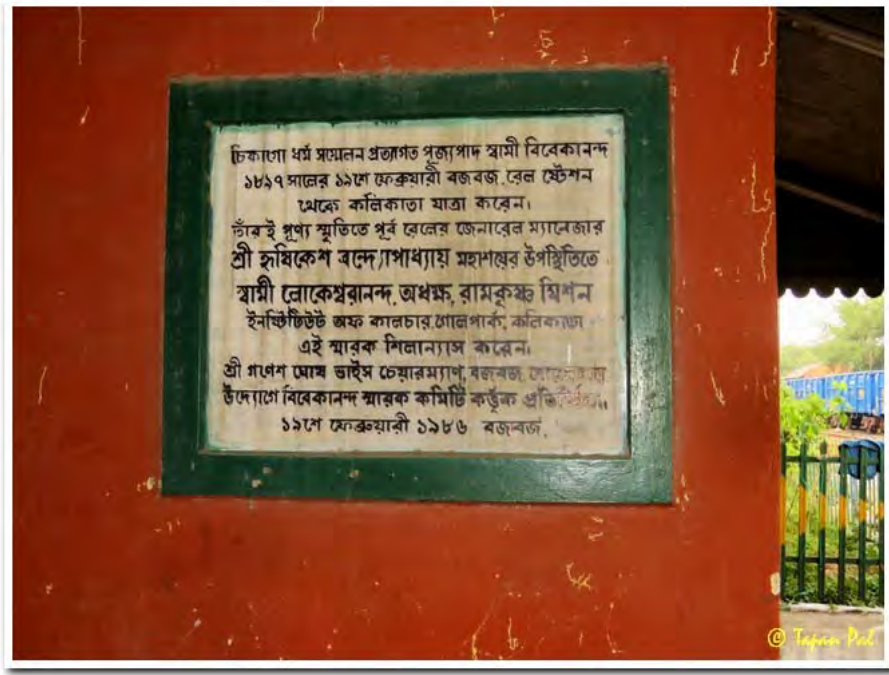 চিকাগো ধর্ম সম্মেলন প্রত্যাগত পূজ্যপাদ স্বামী বিবেকানন্দ
১৮৯৭ সালের ১৯শে ফেব্রুয়ারী বজবজ রেল ষ্টেশন
থেকে কলিকাতা যাত্রা করেন।
তাঁরই পূণ্য স্মৃতিতে পূর্ব রেলের জেনারেল ম্যানেজার
শ্রী হৃষিকেশ বন্দ্যোপাধ্যায় মহাশয়ের উপস্থিতিতে
স্বামী লোকেশ্বরানন্দ, অধ্যক্ষ, রামকৃষ্ণ মিশন
ইনষ্টিটিউট অফ কালচার, গোলপার্ক, কলিকাতা
এই স্মারক শিলান্যাস করেন।
শ্রী গণেশ ঘোষ ভাইস চেয়ারম্যাণ, বজবজ
উদ্যোগে বিবেকানন্দ স্মারক কমিটি কর্তৃক
১৯শে ফেব্রুয়ারী ১৯৮৬ বজবজ.
© Tapan Pal